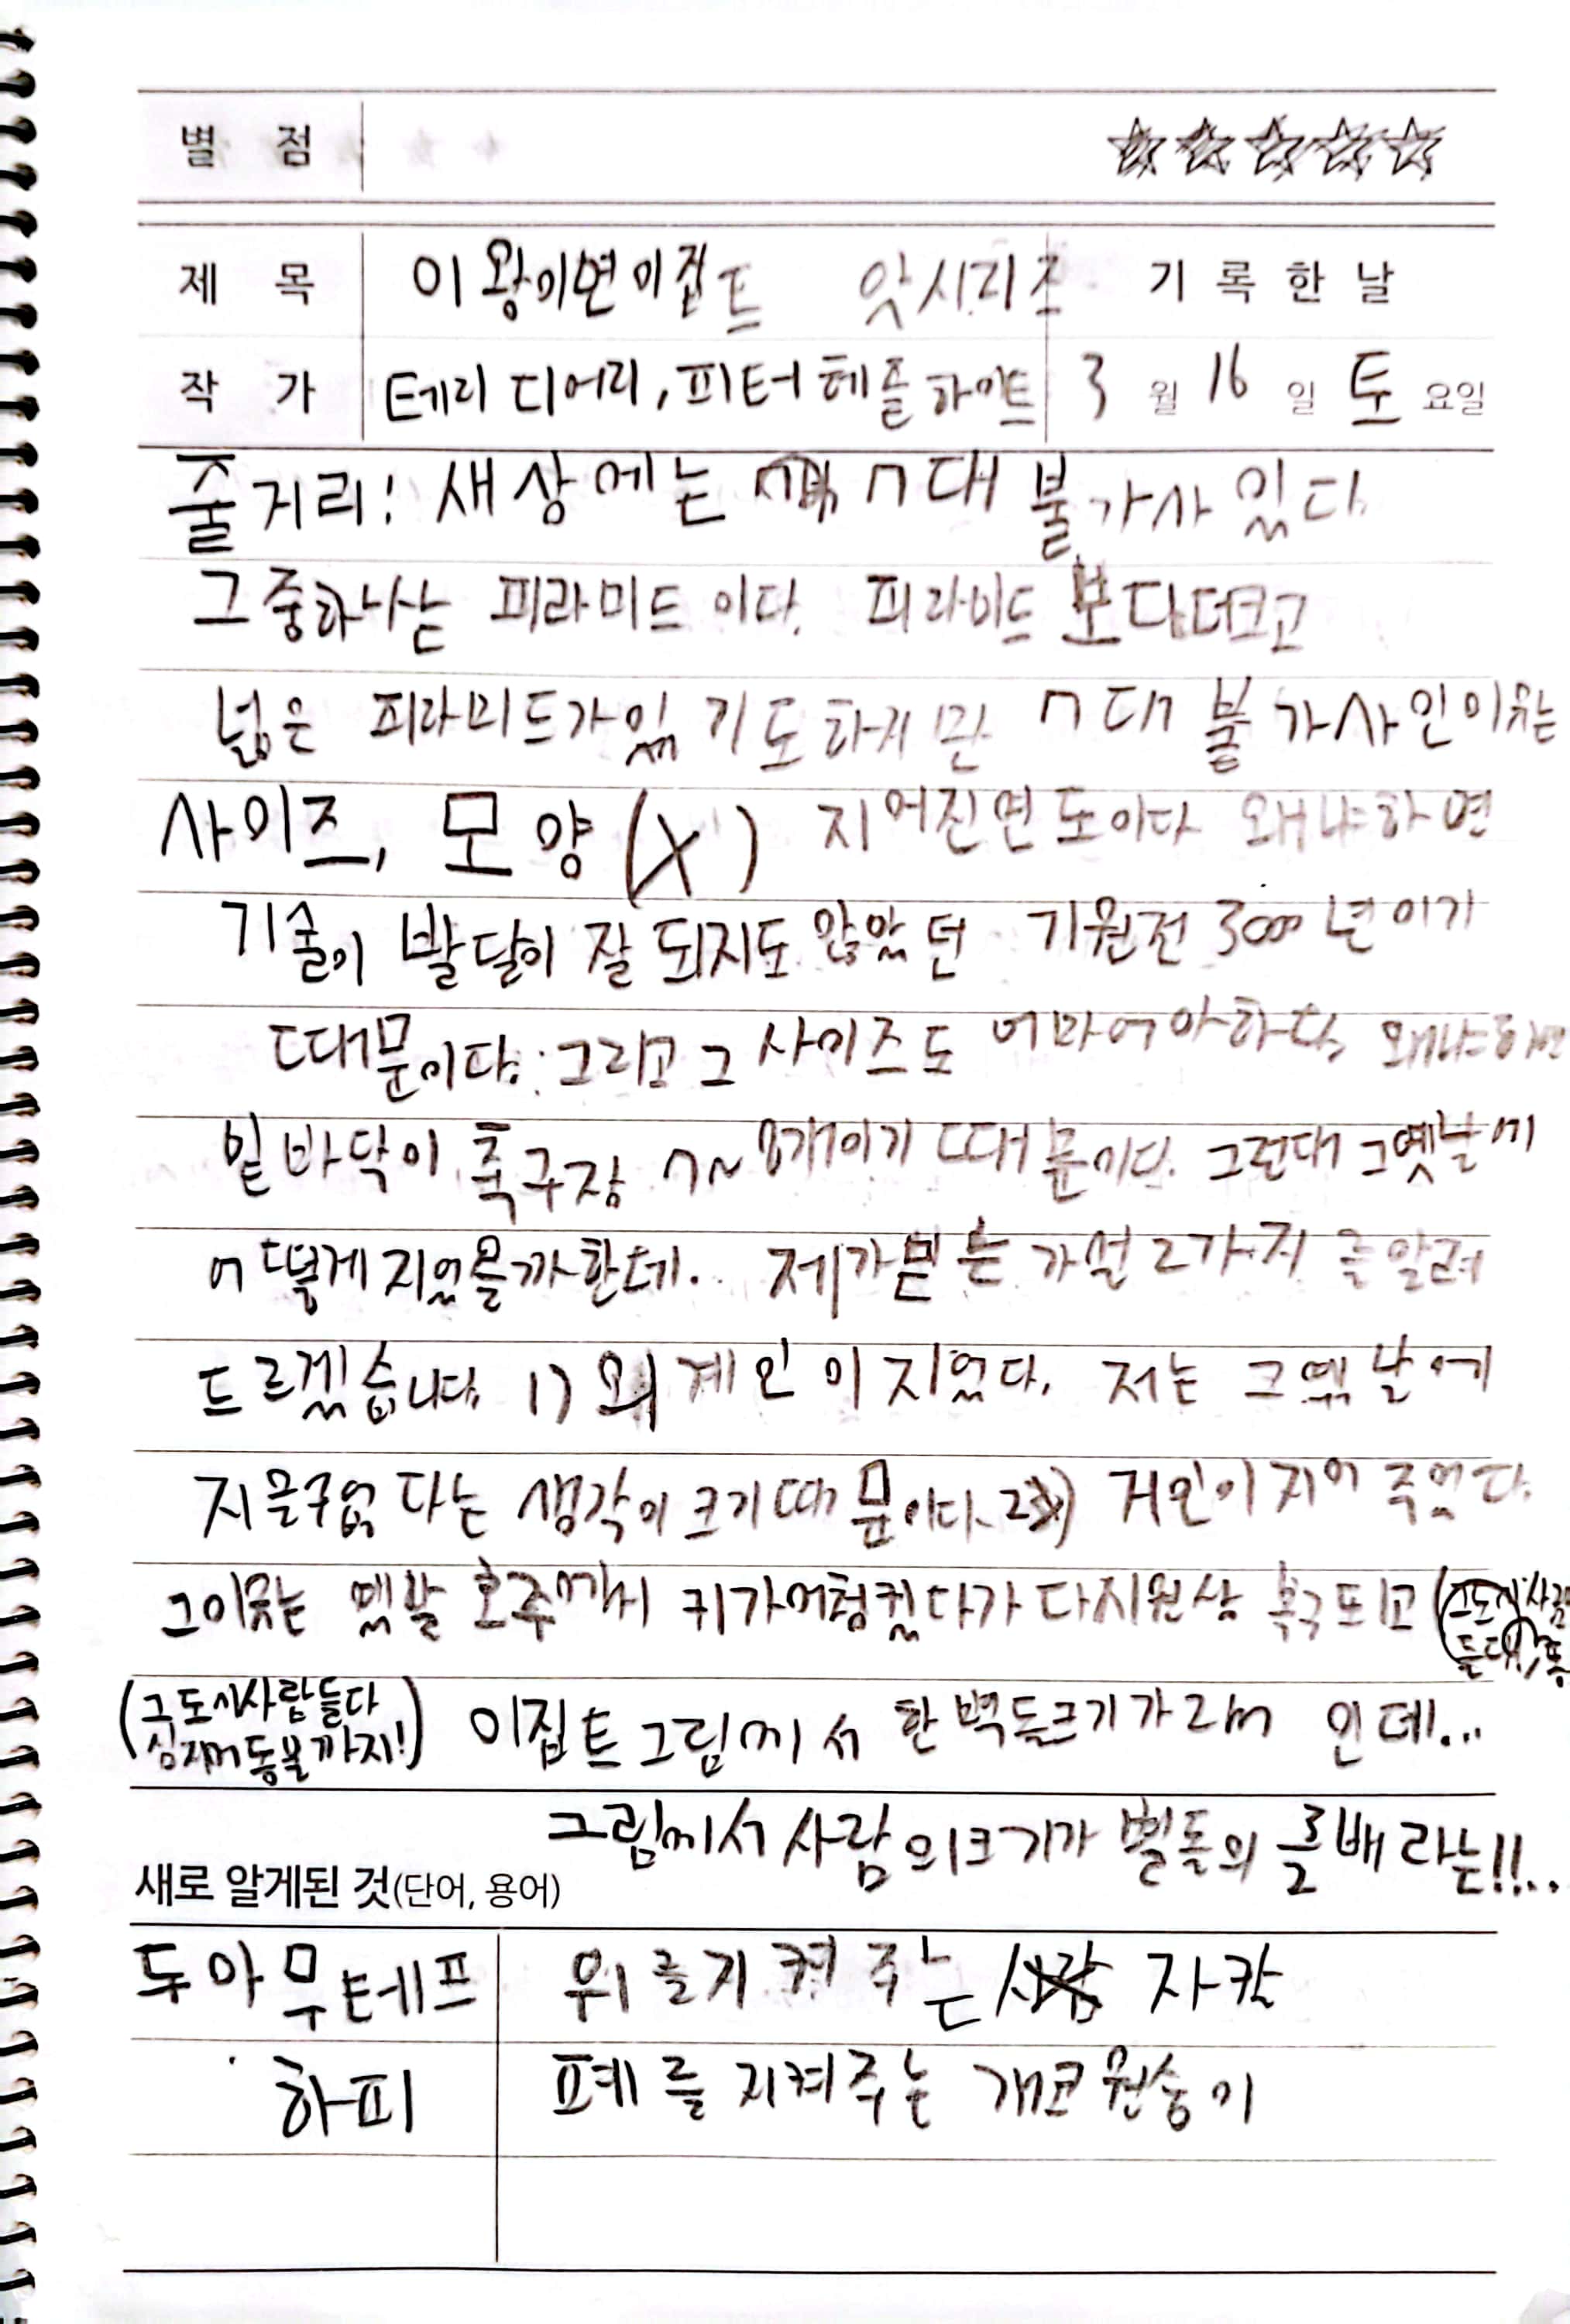 별 점 ☆☆☆☆☆
제 목 이왕이면이집트 앗시리즈 기 록 한 날
작 가 테리 디어리, 피터 헤플 화이트 3 월 16 일 토 요일
줄거리: 새상에는 7대 불가사 있다.
그중하나는 피라미드 이다. 피라미드 보다더크고
넓은 피라미드가있 기도하지만 7대 불가사인이유는
사이즈, 모양(X) 지어진면도이다 왜냐하면
기술이 발달이 잘 되지도 않았던 기원전 3000년이기
때문이다. 그리고 그 사이즈도 어마어마하다. 왜냐하면
밑바닥이 축구장 7~8개이기 때문이다. 그런대 그옛날에
어떻게지었을까한데.. 제가믿는 가설 2가지 를알려
드르겠습니다. 1) 외계인이지었다. 저는 그옛날에
지을구없다는 생각이크기때문이다. 2) 거인이지어 주었다.
그이유는 옛날 호주에서 키가어청컸다가다시원상 복구되고
(그도시사람들다 심지어동물까지!) 이집트그림에서 한벽돌크기가2m 인데...
그림에서사람의크기가 벽돌의 3/2배라는!!..
새로 알게된 것(단어, 용어)
두아무테프 위를지켜주는 자칼
하피 폐를지켜주는 개코원숭이